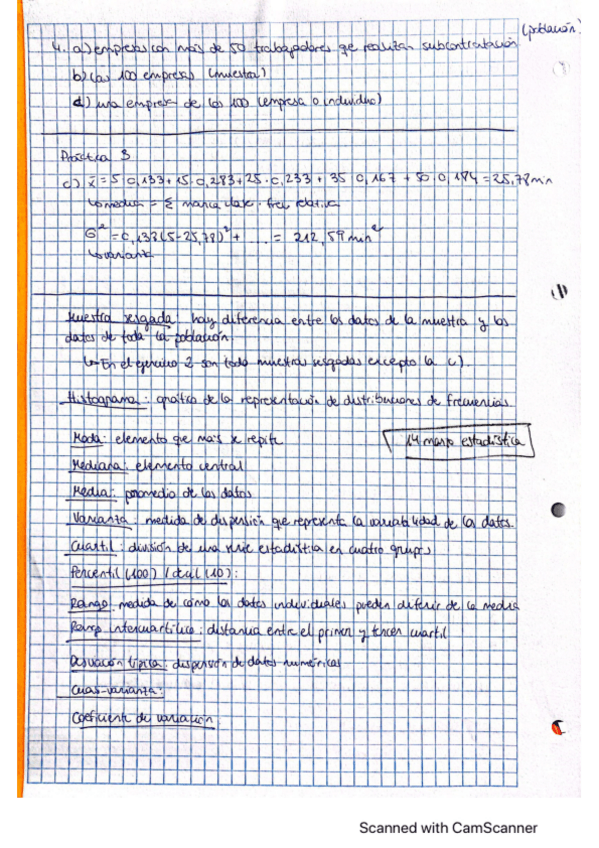 (población)
4. a) empresas con más de 50 trabajadores que realizan subcontratación
b) las 100 empresas (muestra)
d) una empresa de las 100 (empresa o individuo)
Práctica 3
c) x̄ = 5·0,133 + 15·0,283 + 25·0,233 + 35·0,167 + 50·0,184 = 25,78 min
↳ media = Σ marca clase · frec relativa
σ² = 0,133(5-25,78)² + .... = 212,59 min²
↳ varianza
Muestra sesgada: hay diferencia entre los datos de la muestra y los
datos de toda la población.
↳ En el ejercicio 2 son todo muestras sesgadas excepto la c).
Histograma: gráfica de la representación de distribuciones de frecuencias
Moda: elemento que más se repite
14 marzo estadística
Mediana: elemento central
Media: promedio de los datos
Varianza: medida de dispersión que representa la variabilidad de los datos.
Cuartil: división de una serie estadística en cuatro grupos
Percentil (100) / decil (10):
Rango: medida de cómo los datos individuales pueden diferir de la media
Rango intercuartílico: distancia entre el primer y tercer cuartil
Desviación típica: dispersión de datos numéricos
Cuasi-varianza:
Coeficiente de variación
Scanned with CamScanner